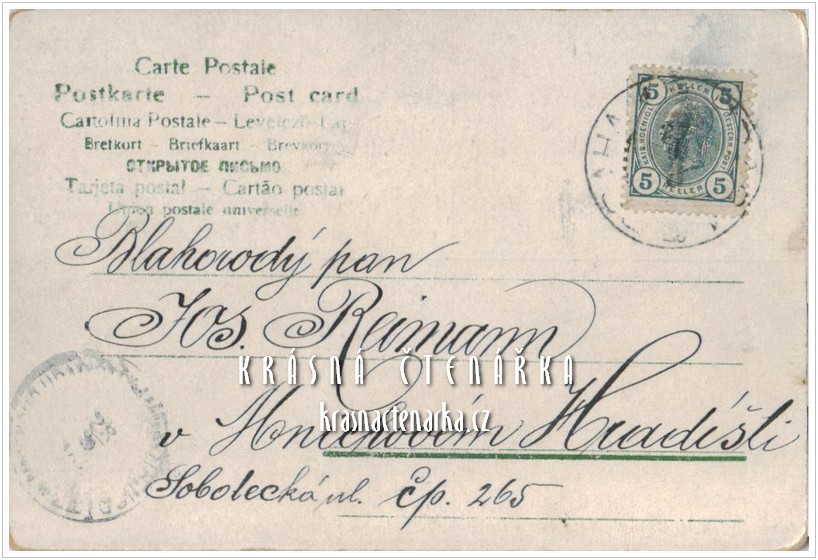 Carte Postale
Postkarte – Post card
Cartolina Postale – Levelező-Lap
Bretkort – Briefkaart – Brevkort
ОТКРЫТОЕ ПИСЬМО
Tarjeta postal – Cartão postal
Union postale universelle
5 HELLER 5
KAIS. KOENIGL. OESTERR. POST
5 HELLER 5
PRAHA
Blahorodý pan
Jos. Reimann
KRÁSNÁ ČTENÁŘKA
krasnactenarka.cz
v Mnichovém Hradišti
Sobotecká ul. čp. 265